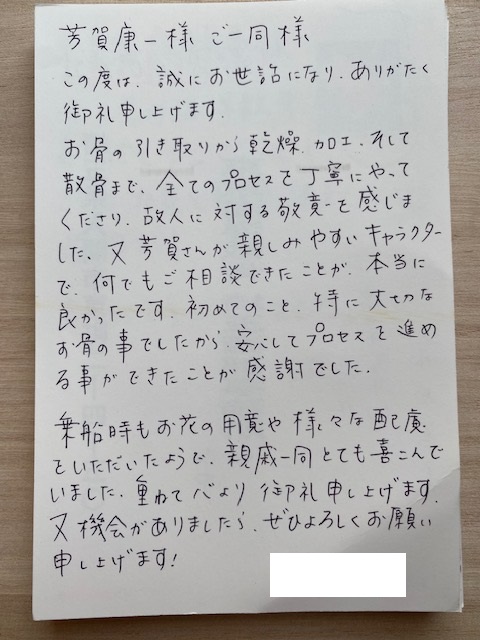 芳賀康一様 ご一同様
この度は、誠にお世話になり、ありがたく
御礼申し上げます。
お骨の引き取りから乾燥、加工、そして
散骨まで、全てのプロセスを丁寧にやって
くださり、故人に対する敬意を感じま
した。又芳賀さんが親しみやすいキャラクター
で、何でもご相談できたことが、本当に
良かったです。初めてのこと、特に大切な
お骨の事でしたから、安心してプロセスを進め
る事ができたことが感謝でした。
乗船時もお花の用意や様々な配慮
をいただいたようで、親戚一同とても喜こんで
いました。重ねて心より御礼申し上げます。
又機会がありましたら、ぜひよろしくお願い
申し上げます!